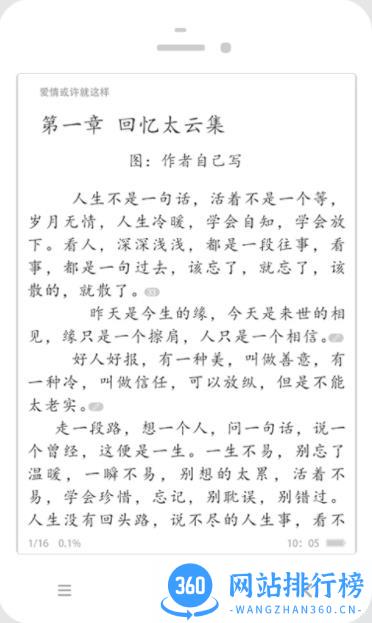 爱情或许就这样
第一章 回忆太云集
图：作者自己写
人生不是一句话，活着不是一个等，
岁月无情，人生冷暖，学会自知，学会放
下。看人，深深浅浅，都是一段往事，看
事，都是一句过去，该忘了，就忘了，该
散的，就散了。
昨天是今生的缘，今天是来世的相
见，缘只是一个擦肩，人只是一个相信。
好人好报，有一种美，叫做善意，有
一种冷，叫做信任，可以放纵，但是不能
太老实。
走一段路，想一个人，问一句话，说一
个曾经，这便是一生。一生不易，别忘了
温暖，一瞬不易，别想的太累，活着不
易，学会珍惜，忘记，别耽误，别错过。
人生没有回头路，说不尽的人生事，看不
1/16 0.1% 10：05
360 网站排行榜
-WANGZHAN360.CN-